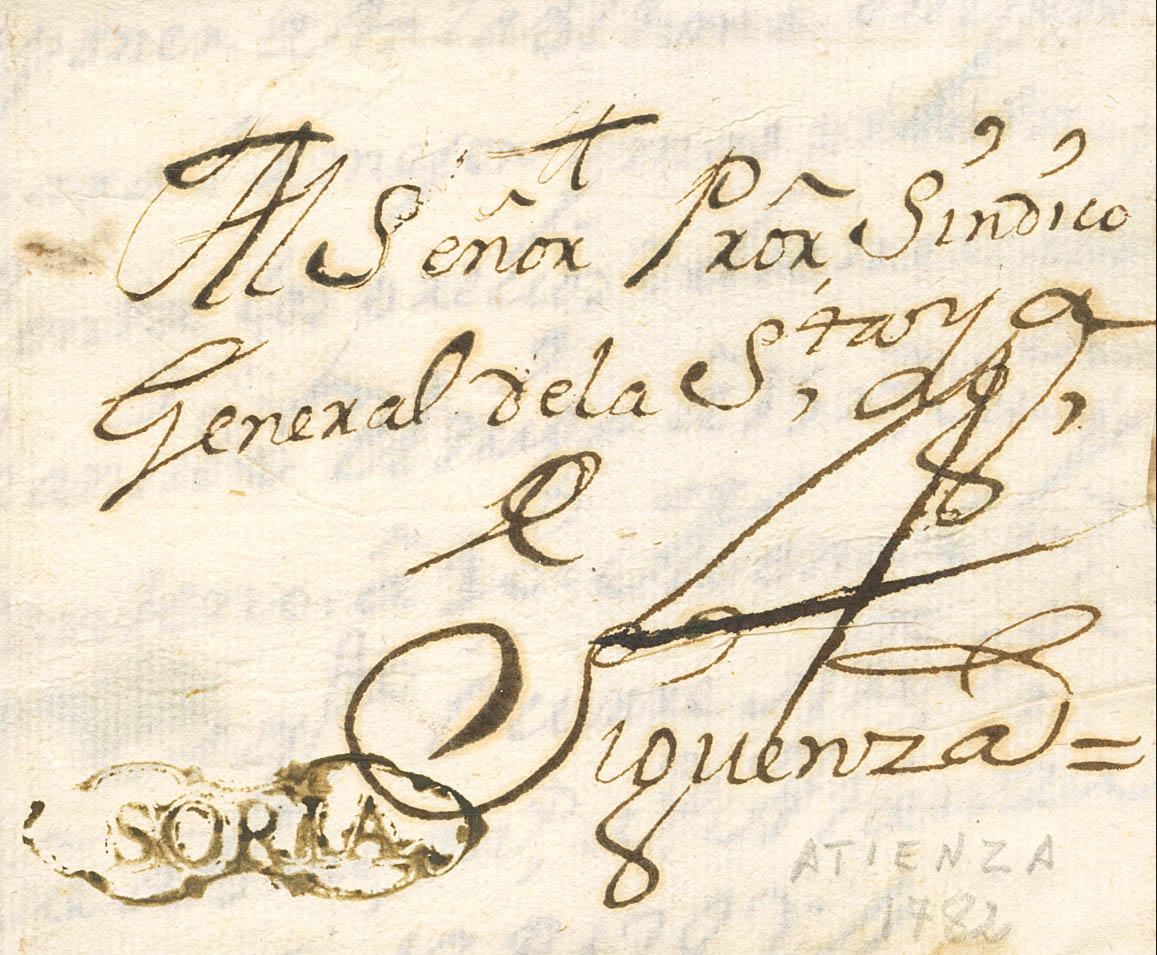 Al Señor Pror̃ Sindico
General de la S.ta
Siguenza =
SORIA
ATIENZA
1782